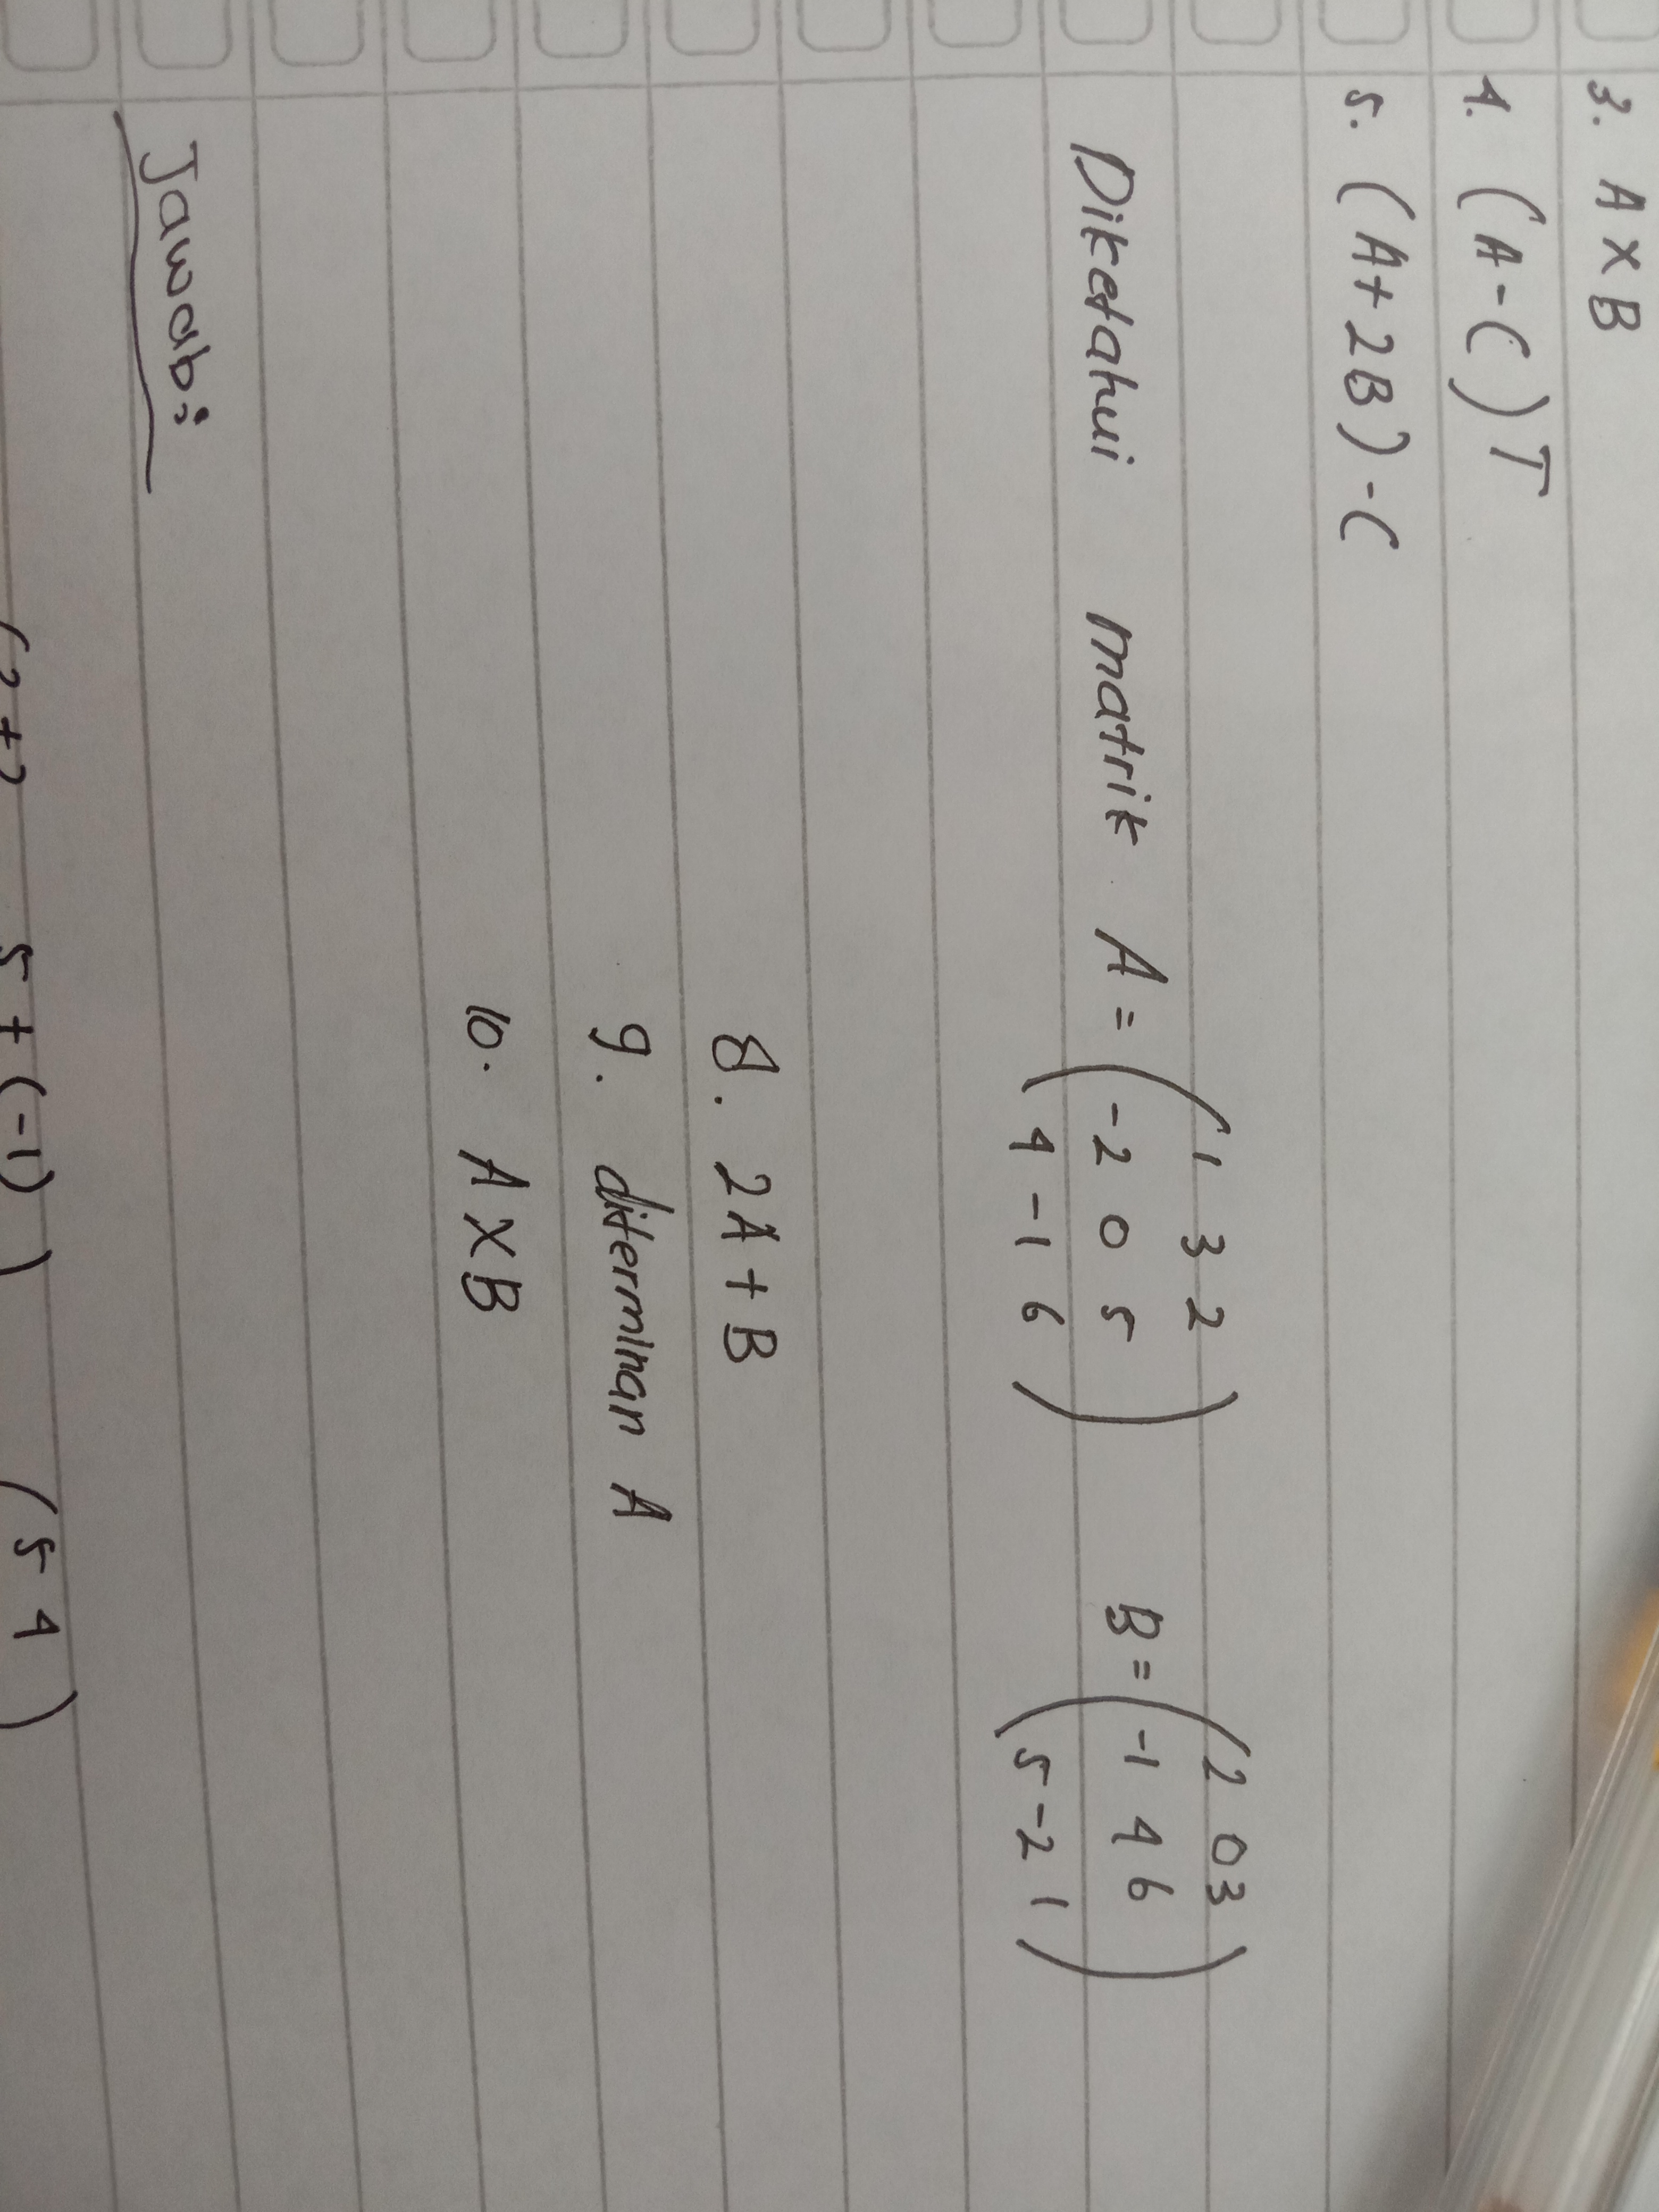 3. A x B
4. (A - C)T
5. (A + 2B) - C
Diketahui matrik A = (1 3 2
-2 0 5
4 -1 6) B = (2 0 3
-1 4 6
5 -2 1)
8. 2A + B
9. diterminan A
10. A x B
Jawab:
5 + (-1) ) ( 5 4 )